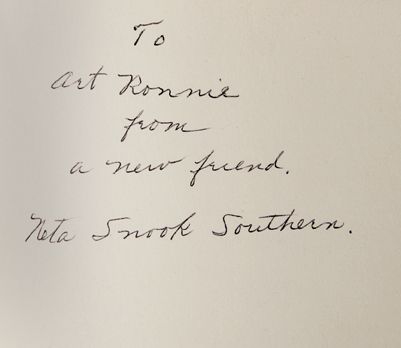 To
Art Ronnie
from
a new friend.
Neta Snook Southern.